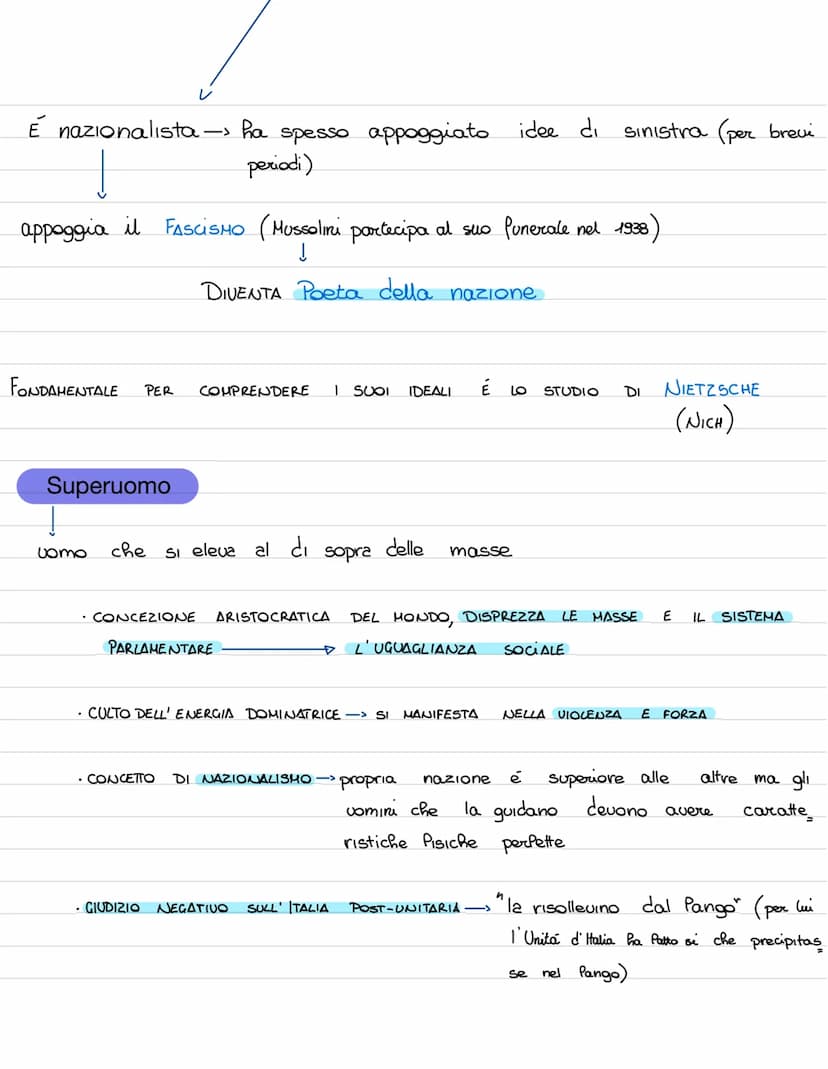 É nazionalista → ha spesso appoggiato idee di sinistra (per brevi
periodi)
appoggia il FASCISMO (Mussolini partecipa al suo funerale nel 1938)
DIVENTA Poeta della nazione
FONDAMENTALE PER COMPRENDERE I SUOI IDEALI É LO STUDIO DI NIETZSCHE
(NICH)
Superuomo
uomo che si eleva al di sopra delle masse
· CONCEZIONE ARISTOCRATICA DEL MONDO, DISPREZZA LE MASSE E IL SISTEMA
PARLAMENTARE → L'UGUAGLIANZA SOCIALE
· CULTO DELL'ENERGIA DOMINATRICE → SI MANIFESTA NELLA VIOLENZA E FORZA
· CONCETTO DI NAZIONALISMO → propria nazione é superiore alle altre ma gli
uomini che la guidano devono avere caratte=
ristiche fisiche perfette
· GIUDIZIO NEGATIVO SULL'ITALIA POST-UNITARIA → "la risollevino dal fango" (per lui
l'Unitá d'Italia ha fatto si che precipitas=
se nel fango)